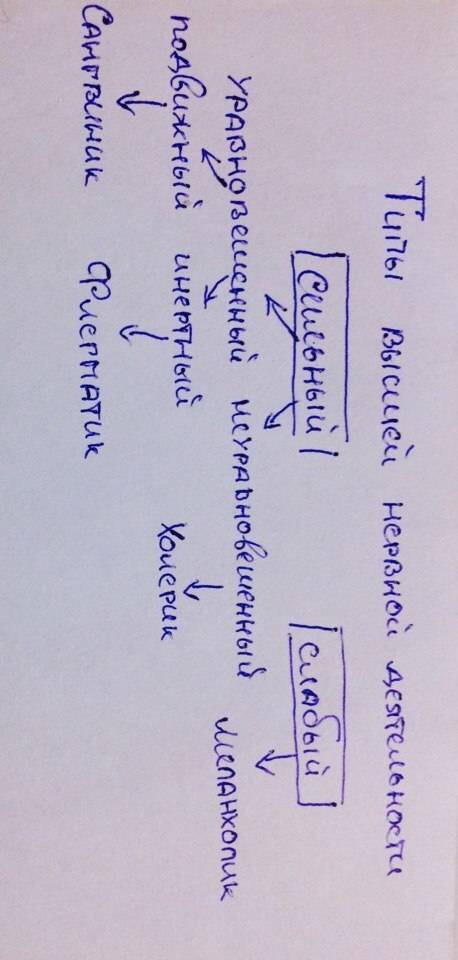 Типы высшей нервной деятельности
сильный слабый
уравновешенный неуравновешенный меланхолик
подвижный инертный холерик
Сангвиник Флегматик